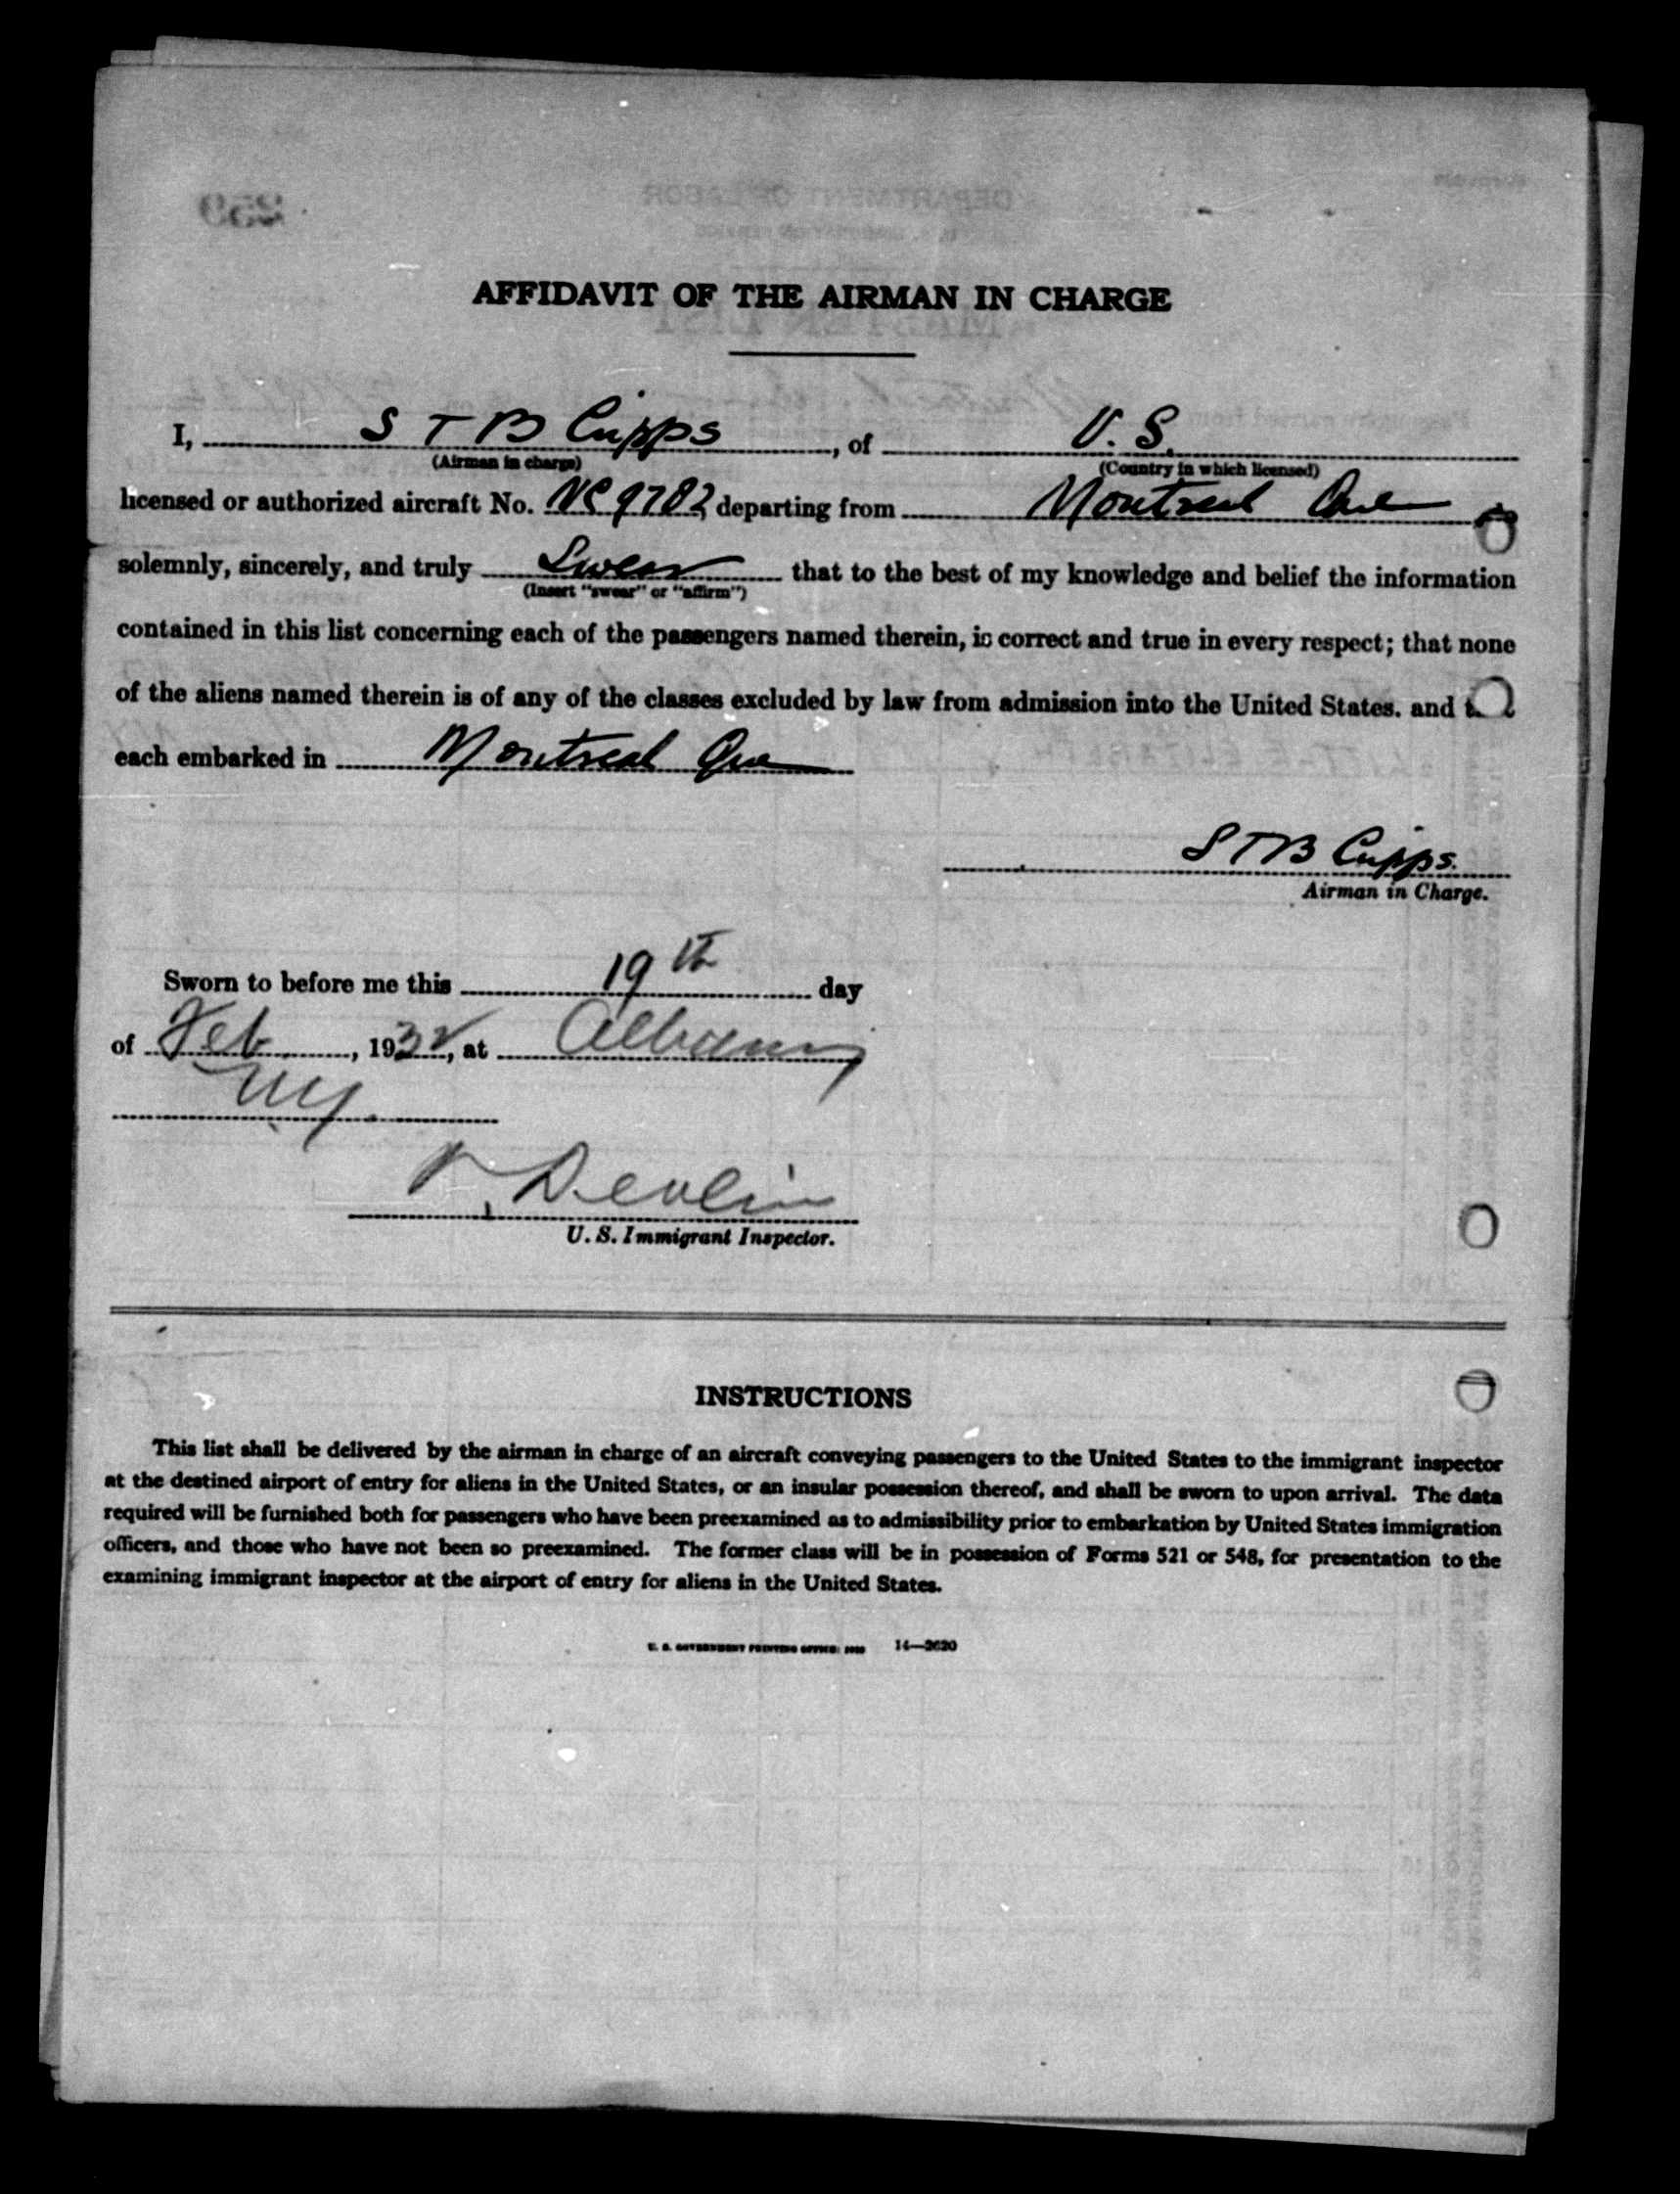 AFFIDAVIT OF THE AIRMAN IN CHARGE
I, S T B Cripps, of U. S.
(Airman in charge) (Country in which licensed)
licensed or authorized aircraft No. NC 9782 departing from Montreal Que
solemnly, sincerely, and truly Swear that to the best of my knowledge and belief the information
(Insert "swear" or "affirm")
contained in this list concerning each of the passengers named therein, is correct and true in every respect; that none
of the aliens named therein is of any of the classes excluded by law from admission into the United States, and
each embarked in Montreal Que
S T B Cripps.
Airman in Charge.
Sworn to before me this 19th day
of Feb, 1932, at Albany
NY.
Devlin
U. S. Immigrant Inspector.
INSTRUCTIONS
This list shall be delivered by the airman in charge of an aircraft conveying passengers to the United States to the immigrant inspector
at the destined airport of entry for aliens in the United States, or an insular possession thereof, and shall be sworn to upon arrival. The data
required will be furnished both for passengers who have been preexamined as to admissibility prior to embarkation by United States immigration
officers, and those who have not been so preexamined. The former class will be in possession of Forms 521 or 548, for presentation to the
examining immigrant inspector at the airport of entry for aliens in the United States.
U. S. GOVERNMENT PRINTING OFFICE: 14—2620